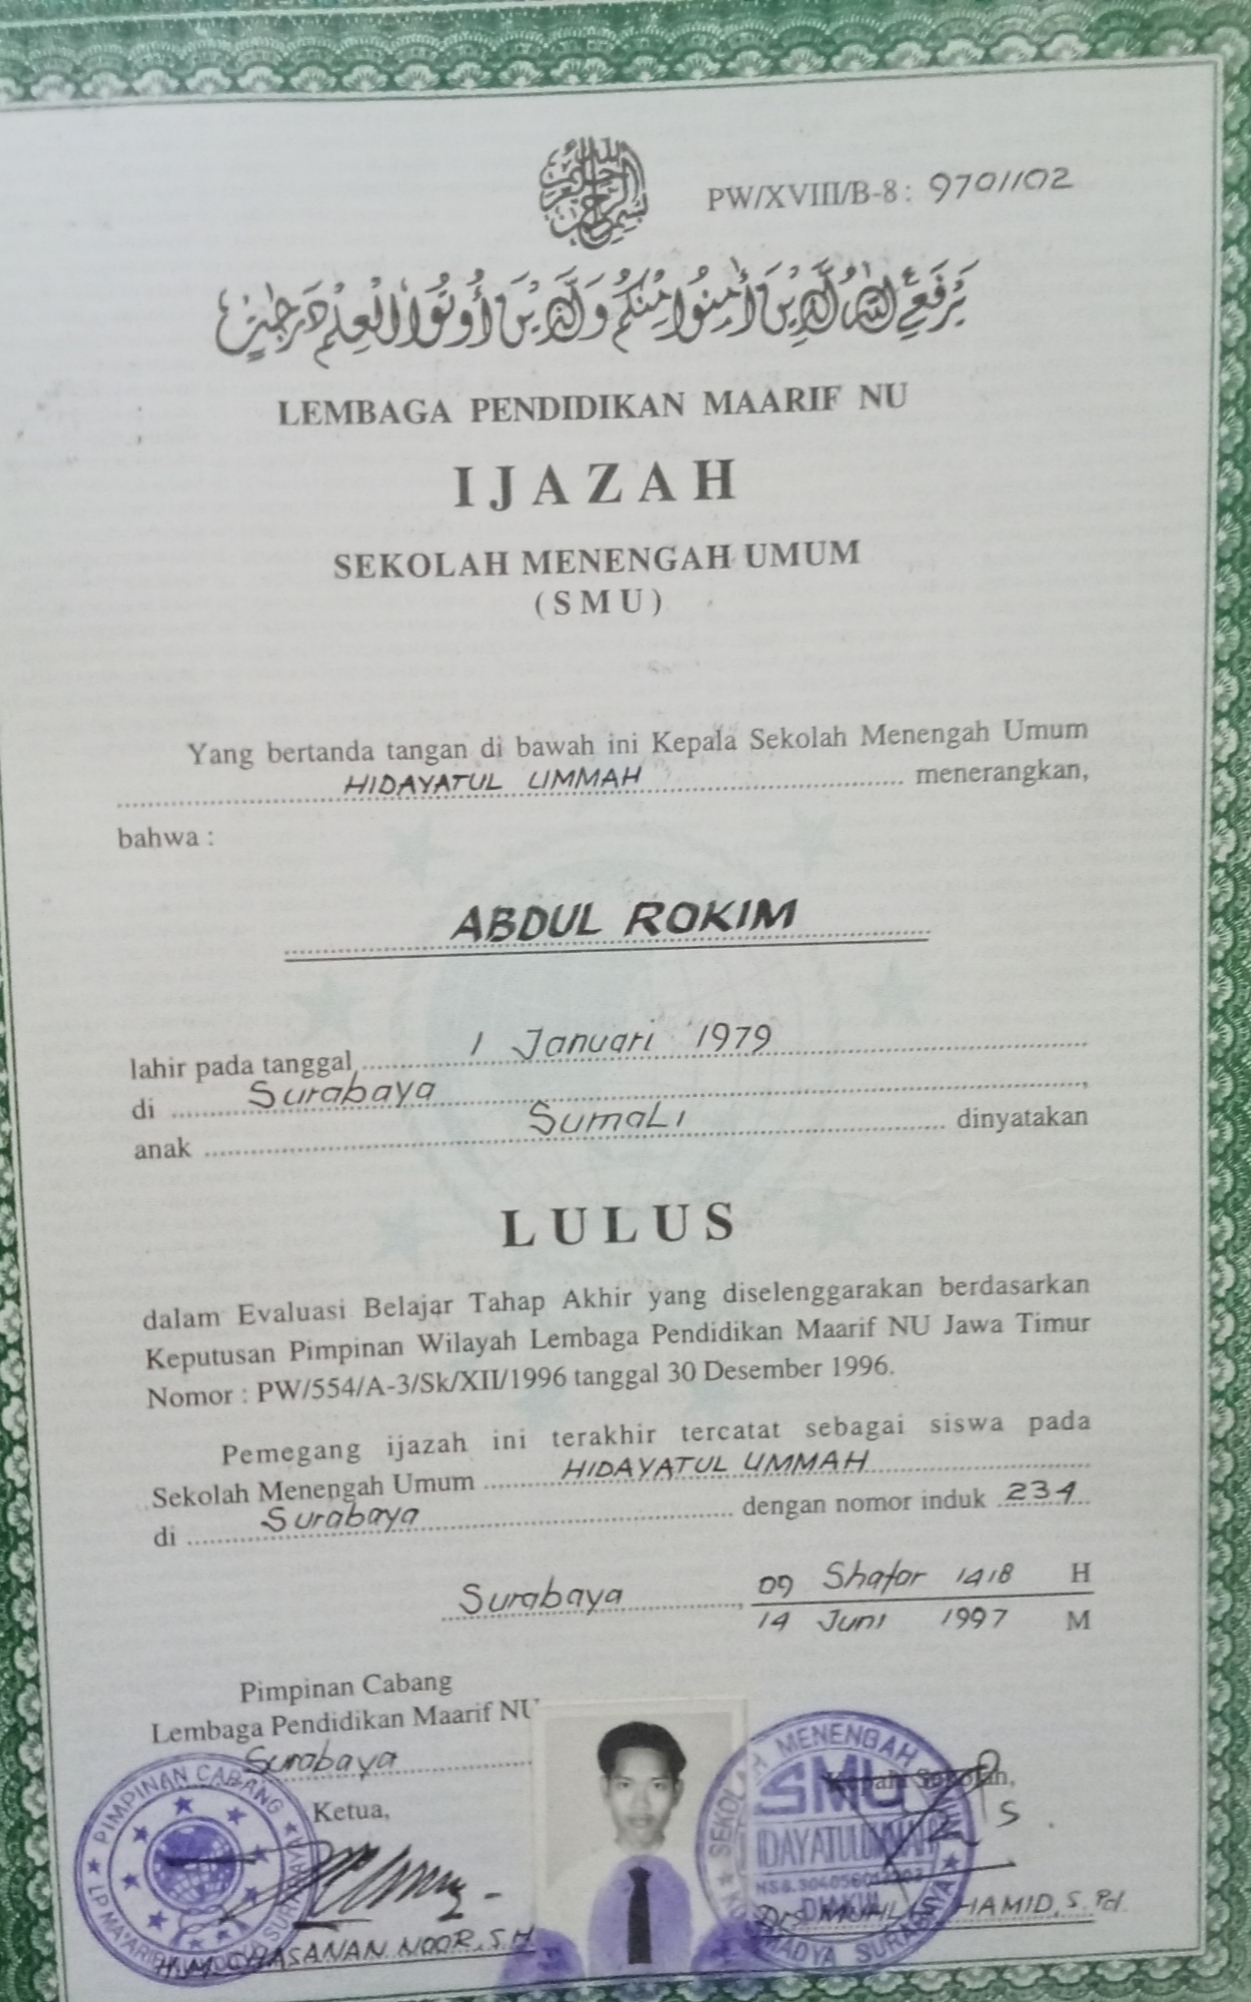 بسم الله الرحمن الرحيم
PW/XVIII/B-8 : 9701102
يَرْفَعِ اللهُ الَّذِينَ أٰمَنُوا مِنْكُمْ وَالَّذِينَ أُوتُوا الْعِلْمَ دَرَجٰتٍ
LEMBAGA PENDIDIKAN MAARIF NU
IJAZAH
SEKOLAH MENENGAH UMUM
(SMU)
Yang bertanda tangan di bawah ini Kepala Sekolah Menengah Umum
HIDAYATUL UMMAH menerangkan,
bahwa :
ABDUL ROKIM
lahir pada tanggal 1 Januari 1979
di Surabaya,
anak SumaLi dinyatakan
LULUS
dalam Evaluasi Belajar Tahap Akhir yang diselenggarakan berdasarkan
Keputusan Pimpinan Wilayah Lembaga Pendidikan Maarif NU Jawa Timur
Nomor : PW/554/A-3/Sk/XII/1996 tanggal 30 Desember 1996.
Pemegang ijazah ini terakhir tercatat sebagai siswa pada
Sekolah Menengah Umum HIDAYATUL UMMAH
di Surabaya dengan nomor induk 234
Surabaya, 09 Shafar 1418 H
14 Juni 1997 M
Pimpinan Cabang
Lembaga Pendidikan Maarif NU
Surabaya
Ketua,
Kepala Sekolah,
PIMPINAN CABANG
LP MA'ARIF SURABAYA
SEKOLAH MENENGAH UMUM
SMU
HIDAYATUL UMMAH
SURABAYA
H.M. CHASANAN NOOR, S.H
HAMID, S.Pd